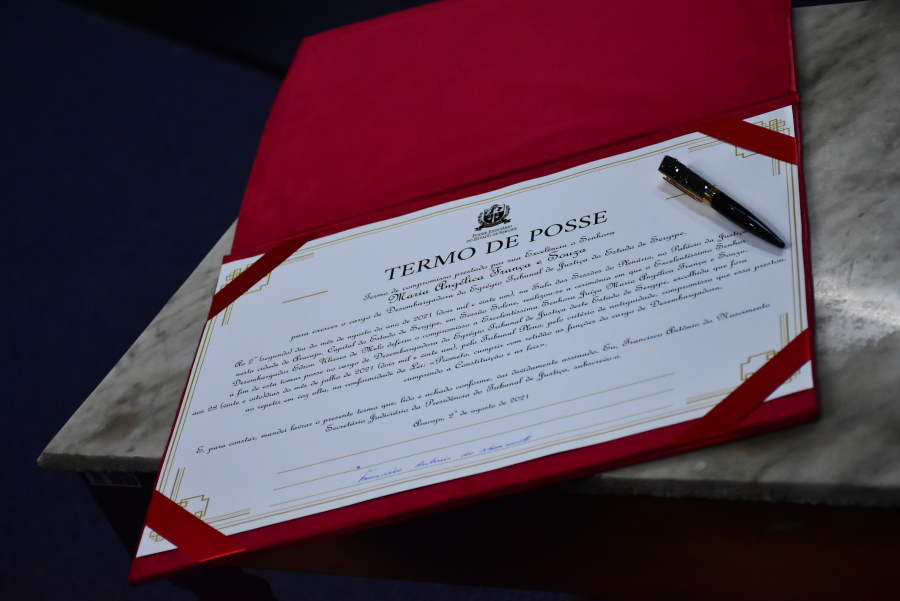 PODER JUDICIÁRIO
DO ESTADO DE SERGIPE
TERMO DE POSSE
Termo de compromisso prestado por sua Excelência a Senhora
Maria Angélica França e Souza
para exercer o cargo de Desembargadora do Egrégio Tribunal de Justiça do Estado de Sergipe.
Ao 2º (segundo) dia do mês de agosto do ano de 2021 (dois mil e vinte um), na Sala das Sessões do Plenário, no Palácio da Justiça
nesta cidade de Aracaju, Capital do Estado de Sergipe, em Sessão Solene, realizou-se a cerimônia em que o Excelentíssimo Senhor
Desembargador Edson Ulisses de Melo deferiu o compromisso a Excelentíssima Senhora Juíza Maria Angélica França e Souza,
a fim de esta tomar posse no cargo de Desembargadora do Egrégio Tribunal de Justiça deste Estado de Sergipe, escolhida que fora
aos 28 (vinte e oito)dias do mês de julho de 2021 (dois mil e vinte um), pelo Tribunal Pleno, pelo critério de antiguidade, compromisso que essa prestou,
ao repetir em voz alta, na conformidade da Lei: «Prometo, cumprir com retidão as funções do cargo de Desembargadora,
cumprindo a Constituição e as leis».
E, para constar, mandei lavrar o presente termo que, lido e achado conforme, vai devidamente assinado. Eu, Francisco Antônio do Nascimento
Secretário Judiciário da Presidência do Tribunal de Justiça, subscrevo-o.
Aracaju, 2º de agosto de 2021
Francisco Antonio do Nascimento